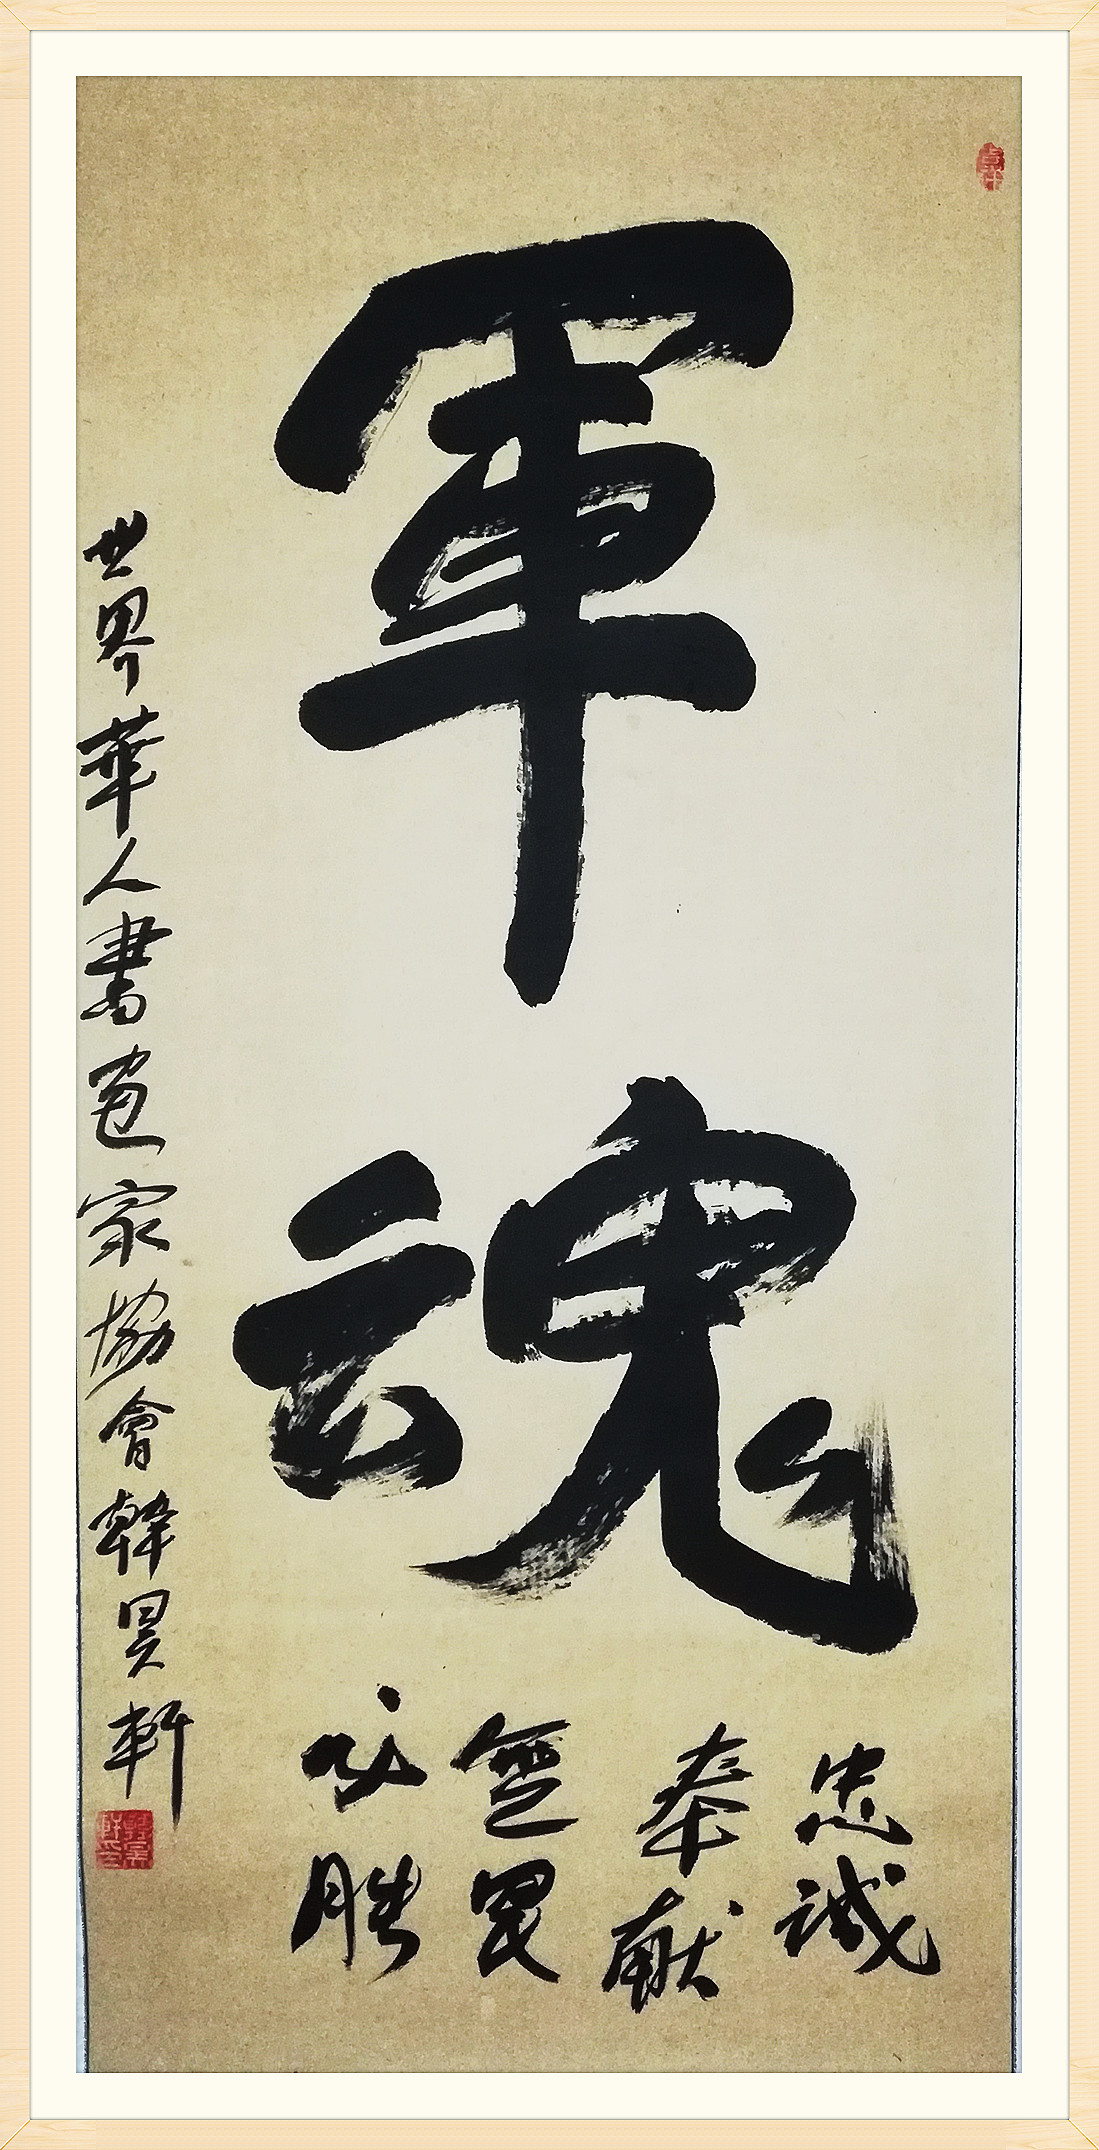 軍魂
忠誠
奉献
無畏
必勝
世界華人書畫家協會韓昊軒